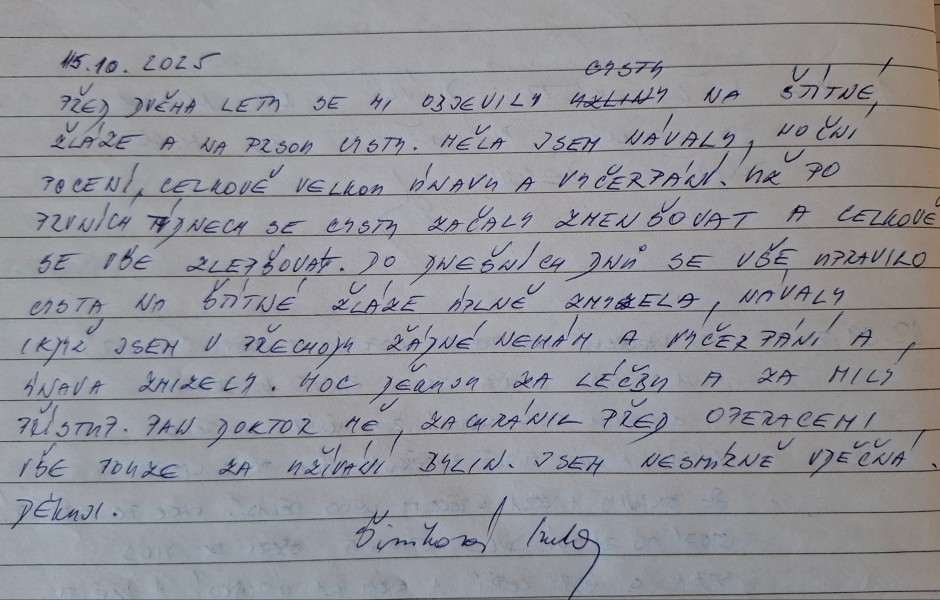 15.10. 2025
CYSTY
PŘED DVĚMA LETY SE MI OBJEVILY UZLINY NA ŠTÍTNÉ
ŽLÁZE A NA PRSOU CYSTY. MĚLA JSEM NÁVALY, NOČNÍ
POCENÍ, CELKOVĚ VELKOU ÚNAVU A VYČERPÁNÍ. UŽ PO
PRVNÍCH TÝDNECH SE CYSTY ZAČALY ZMENŠOVAT A CELKOVĚ
SE VŠE ZLEPŠOVAT. DO DNEŠNÍCH DNŮ SE VŠE UPRAVILO
CYSTA NA ŠTÍTNÉ ŽLÁZE ÚPLNĚ ZMIZELA, NÁVALY
IKDYŽ JSEM V PŘECHODU ŽÁDNÉ NEMÁM A VYČERPÁNÍ A
ÚNAVA ZMIZELY. MOC DĚKUJU ZA LÉČBU A ZA MILÝ
PŘÍSTUP. PAN DOKTOR MĚ ZACHRÁNIL PŘED OPERACEMI
VŠE POUZE ZA UŽÍVÁNÍ BYLIN. JSEM NESMÍRNĚ VDĚČNÁ.
DĚKUJI.